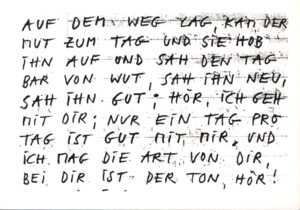 AUF DEM WEG LAG, KAM DER
MUT ZUM TAG UND SIE HOB
IHN AUF UND SAH DEN TAG
BAR VON WUT, SAH IHN NEU,
SAH IHN GUT; HÖR, ICH GEH
MIT DIR; NUR EIN TAG PRO
TAG IST GUT MIT MIR, UND
ICH MAG DIE ART VON DIR,
BEI DIR IST DER TON, HÖR!